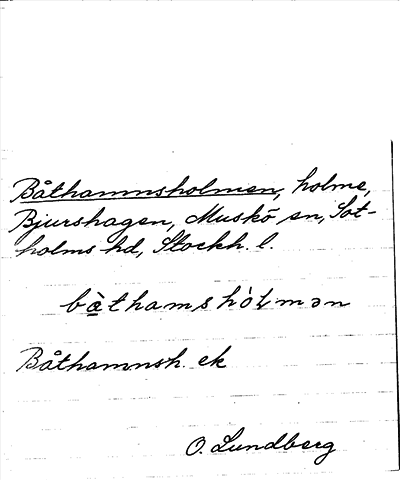 Båthamnsholmen, holme,
Bjurshagen, Muskö sn, Sot-
holms hd, Stockh. l.
bàthamshòlmən
Båthamnsh. ek
O. Lundberg